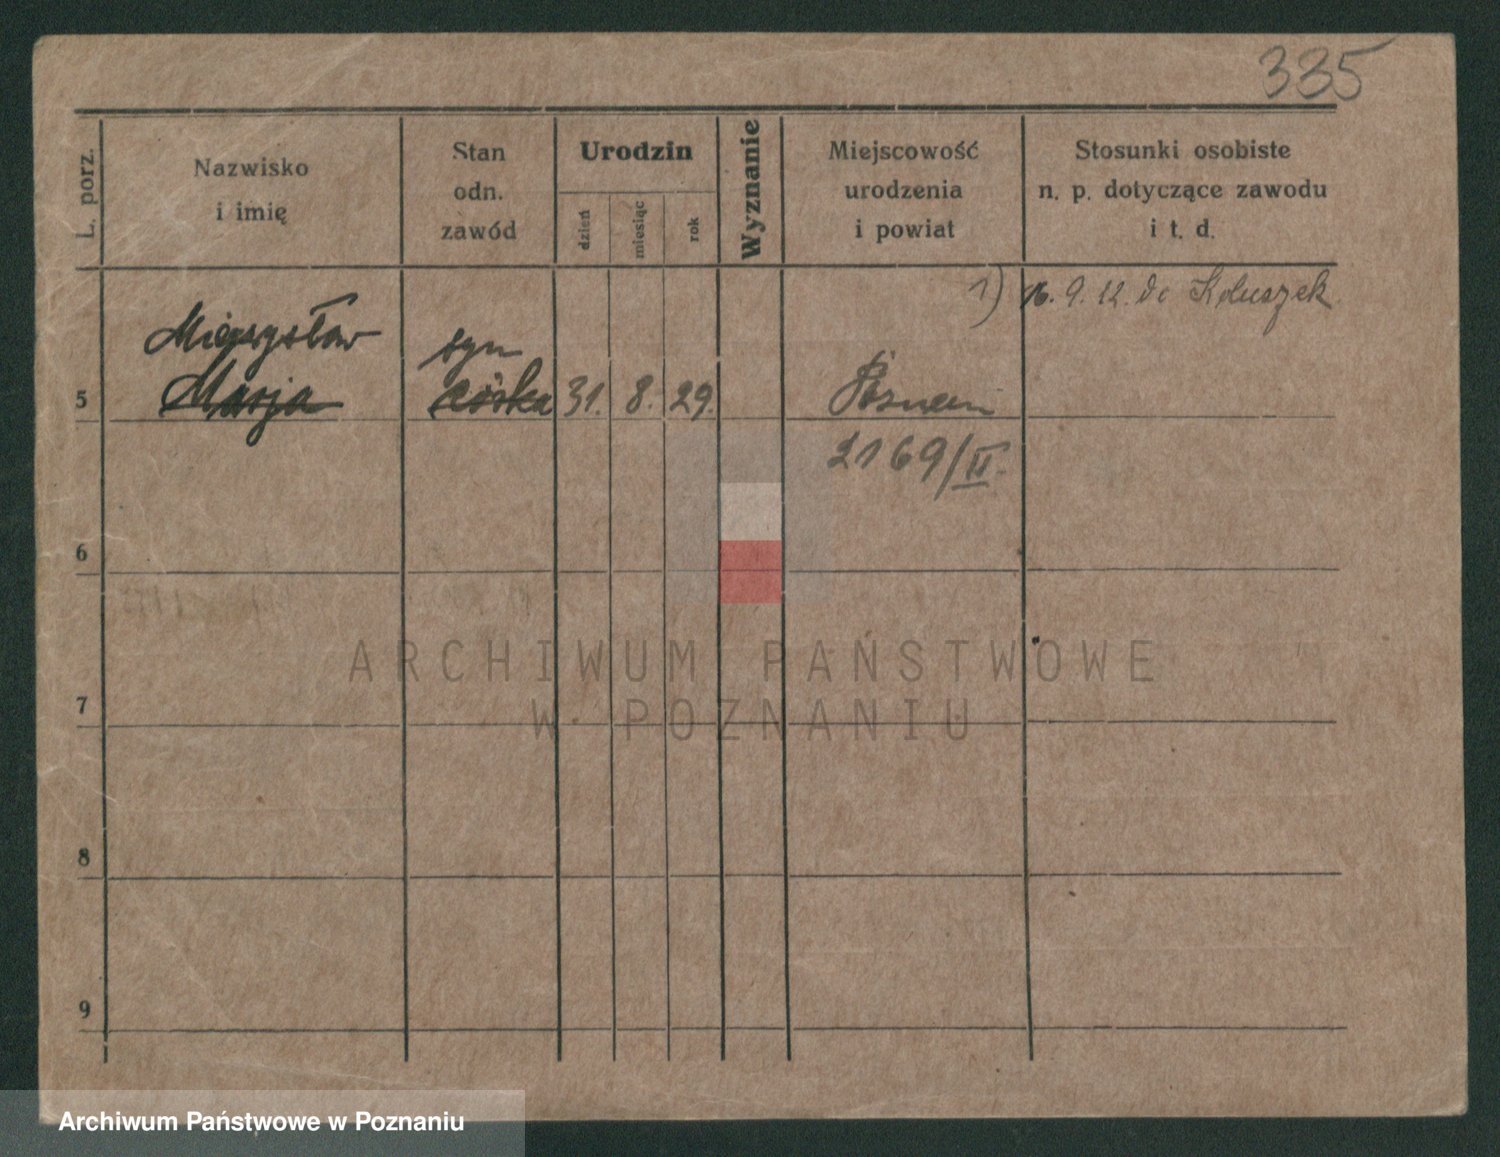 335
L. porz.
Nazwisko
i imię
Stan
odn.
zawód
Urodzin
dzień
miesiąc
rok
Wyznanie
Miejscowość
urodzenia
i powiat
Stosunki osobiste
n. p. dotyczące zawodu
i t. d.
1) 16. 9. 12. do Koluszek
Mieczysław
syn
5 Marja córka 31. 8. 29. Poznań
2169/II.
6
7
8
9
ARCHIWUM PAŃSTWOWE
W POZNANIU
Archiwum Państwowe w Poznaniu